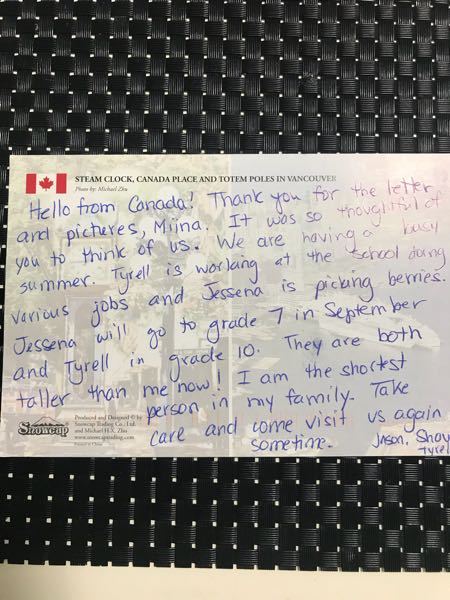 STEAM CLOCK, CANADA PLACE AND TOTEM POLES IN VANCOUVER
Photo by: Michael Zhu
Hello from Canada! Thank you for the letter
and pictures, Miina. It was so thoughtful of
you to think of us. We are having a busy
summer. Tyrell is working at the school doing
various jobs and Jessena is picking berries.
Jessena will go to grade 7 in September
and Tyrell in grade 10. They are both
taller than me now! I am the shortest
person in my family. Take
care and come visit us again
sometime. Jason, Shau
Tyrel
Produced and Designed © by
Snowcap Trading Co., Ltd.
and Michael H.X. Zhu
www.snowcaptrading.com
Printed in China
Snowcap